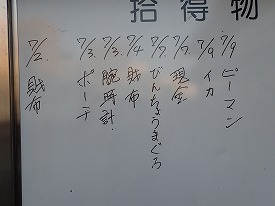 拾得物
7/2. 財布
7/3. ポーチ
7/3. 腕時計
7/4 財布
7/7 びんちょうまぐろ
7/7 現金
7/9 イカ
7/9 ピーマン